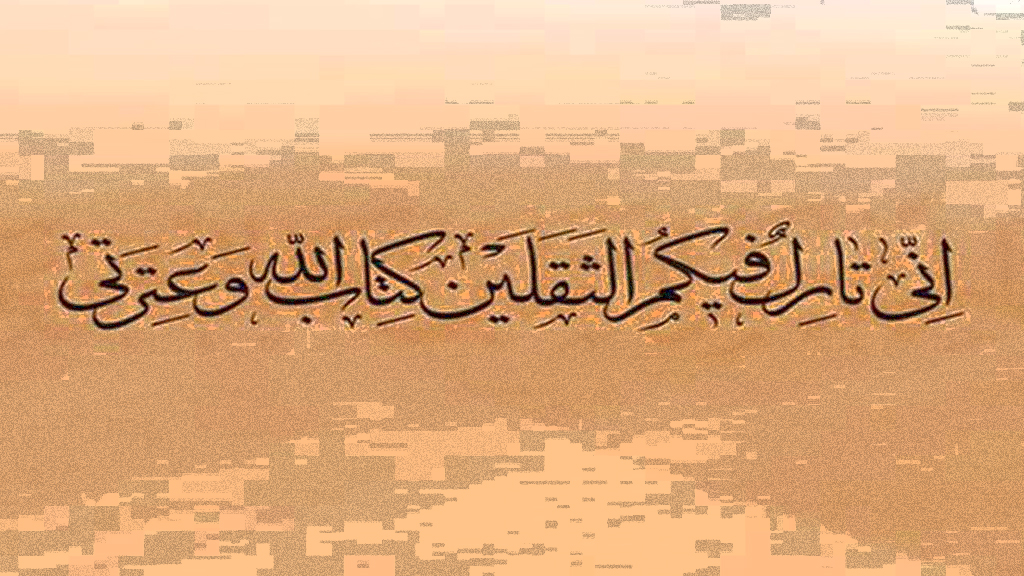 اِنّی تارِكٌ فیكُمُ الثَقَلَیْن كِتابَ اللّه وَ عِترَتی